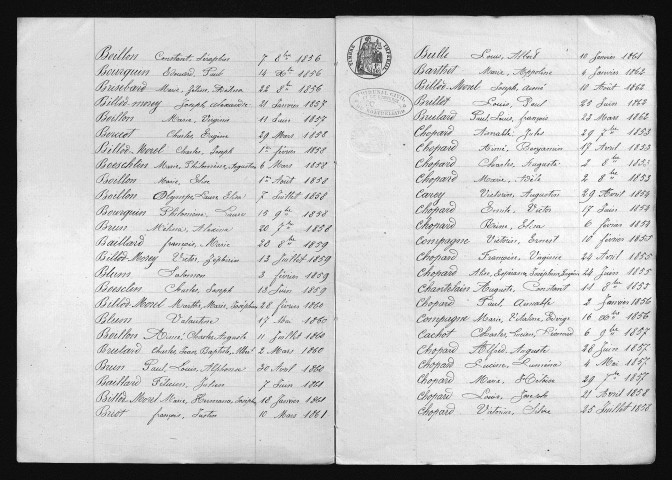 Boillon Constant, Séraphin 7 8bre 1856
Bourquin Edouard, Paul 14 Xbre 1856
Marie, Julie 22 8bre 1856
Billod-morey Joseph, 21 Janvier 1857
Boillon Marie, Virginie 11 Juin 1857
Charles Eugène 29 Mars 1858
Billod-Morel Charles, Joseph 1er février 1858
Marie, Philomène, Augustine 6 Mars 1858
Boillon Marie, Elise 1er Août 1858
Boillon Olympe, Laure, Elisa 7 Juillet 1858
Bourquin Philomène, Laure 13 9bre 1858
Brun 20 7bre 1858
Baillard françois, Marie 20 8bre 1859
Billod-Morey Victor, Zéphirin 13 Juillet 1859
Blum Salomon 3 février 1859
Charles, Joseph 13 Juin 1859
Billod-Morel Marthe, Marie, Joséphine 28 février 1860
Blum Valentine 17 Mai 1860
Boillon Aimé, Charles, Auguste 11 Juillet 1860
Brulard Charles, Jean Baptiste, 2 Mars 1860
Brun Paul, Louis, Alphonse 30 Avril 1860
Baillard Julien 7 Juin 1861
Billod-Morel Marie, Joseph 18 Janvier 1861
françois, Justin 10 Mars 1861
Bulle Louis, Albert 10 Janvier 1861
Barthet Marie, Appoline 4 Janvier 1862
Billod-Morel Joseph, aimé 10 Août 1862
Louis, Paul 23 Juin 1862
Brulard Paul, Louis, françois 23 Mars 1862
Chopard Jules 29 7bre 1853
Chopard Aimé, Benjamin 17 Avril 1853
Chopard Charles, Auguste 2 8bre 1853
Chopard Marie, Adèle 2 8bre 1853
Carey Victorin, Augustin 29 Avril 1854
Chopard Emile, Victor 17 Juin 1854
Chopard Elisa 6 février 1854
Compagne Victorin, Ernest 10 février 1855
Chopard François, Virginie 24 Avril 1855
Chopard 24 Juin 1855
Chantelain Auguste, Constant 11 8bre 1853
Chopard Paul 2 Janvier 1856
Compagne Marie, 16 Xbre 1856
Cachot Charles, 6 9bre 1857
Chopard Alfred, Auguste 26 Juin 1857
Chopard 4 Mai 1857
Chopard Marie, 29 7bre 1857
Chopard Louis, Joseph 21 Avril 1858
Chopard 25 Juillet 1858